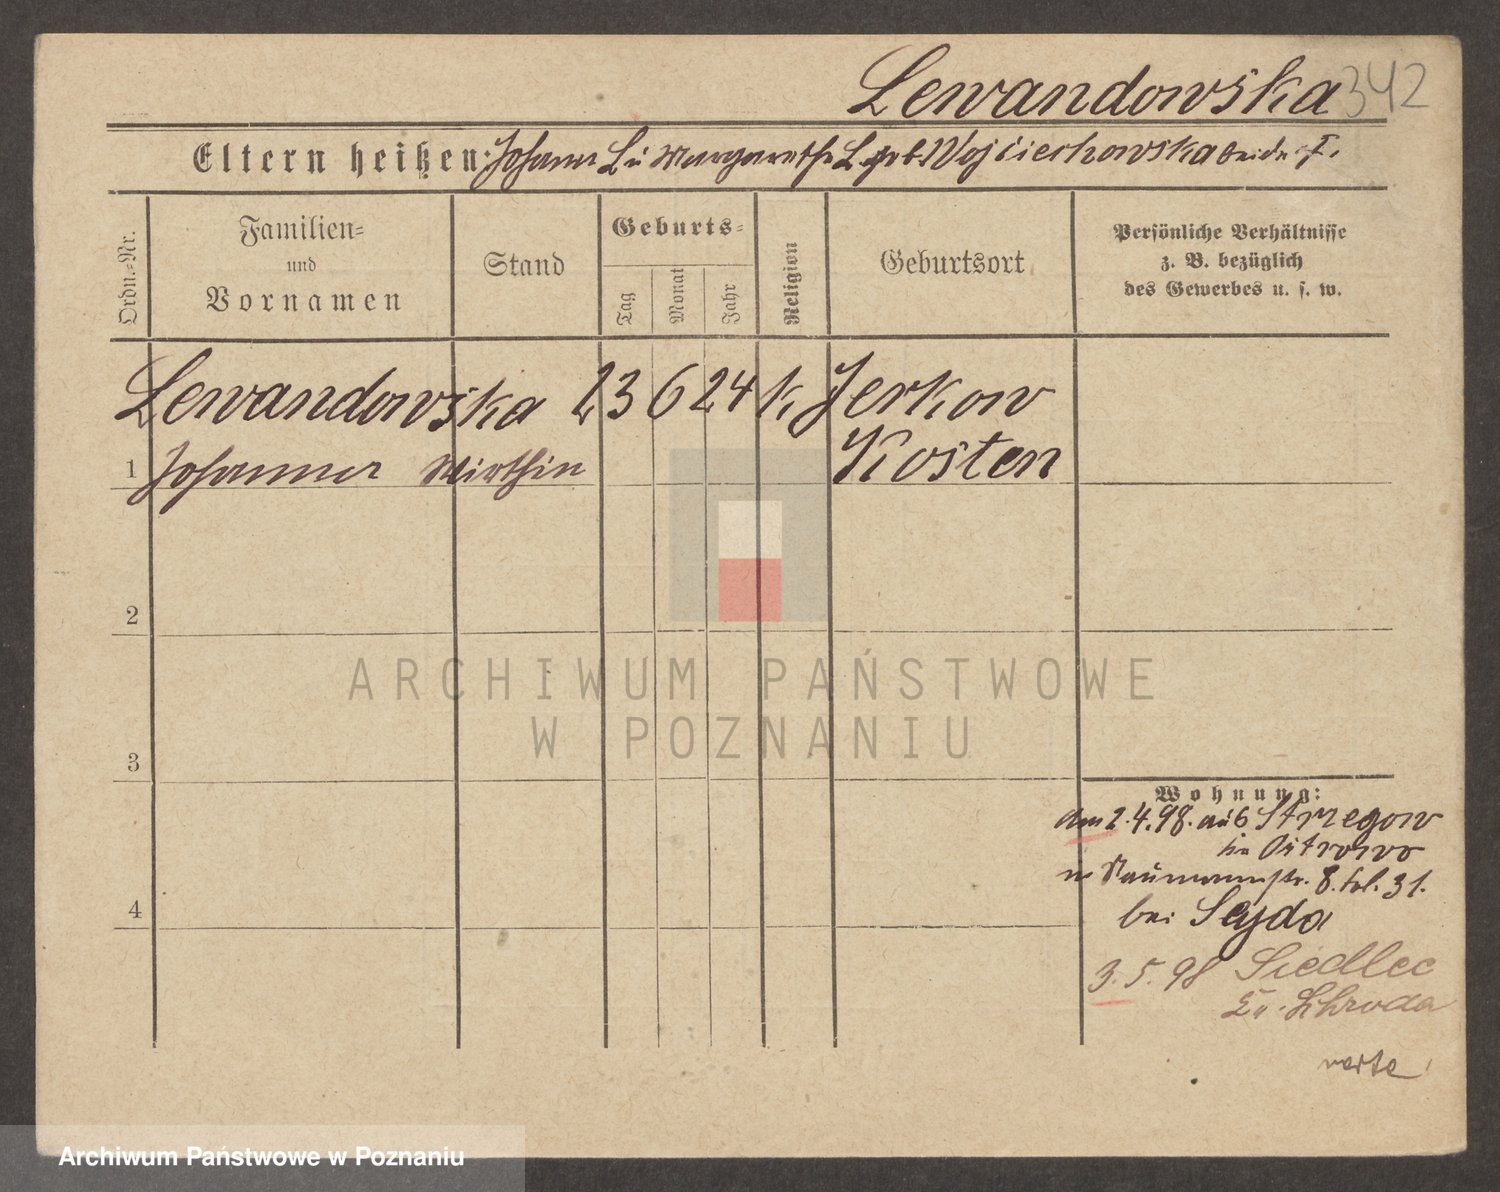 Lewandowska 342
Eltern heißen: Johann L. u Margarethe L. geb. Wojciechowska beide †.
Ordn.-Nr.
Familien-
und
Vornamen
Stand
Geburts-
Tag
Monat
Jahr
Religion
Geburtsort
Persönliche Verhältnisse
z. B. bezüglich
des Gewerbes u. s. w.
Lewandowska 23 6 24 k. Jerkow
Kosten
1 Johanna Wirthin
2
3
4
Wohnung:
am 2.4.98. aus Strzegow
in Ostrowo
n. Naumannstr. 8. 31.
bei Seyda
3.5.98 Siedlec
Kr. Schroda
verte!
ARCHIWUM PAŃSTWOWE
W POZNANIU
Archiwum Państwowe w Poznaniu